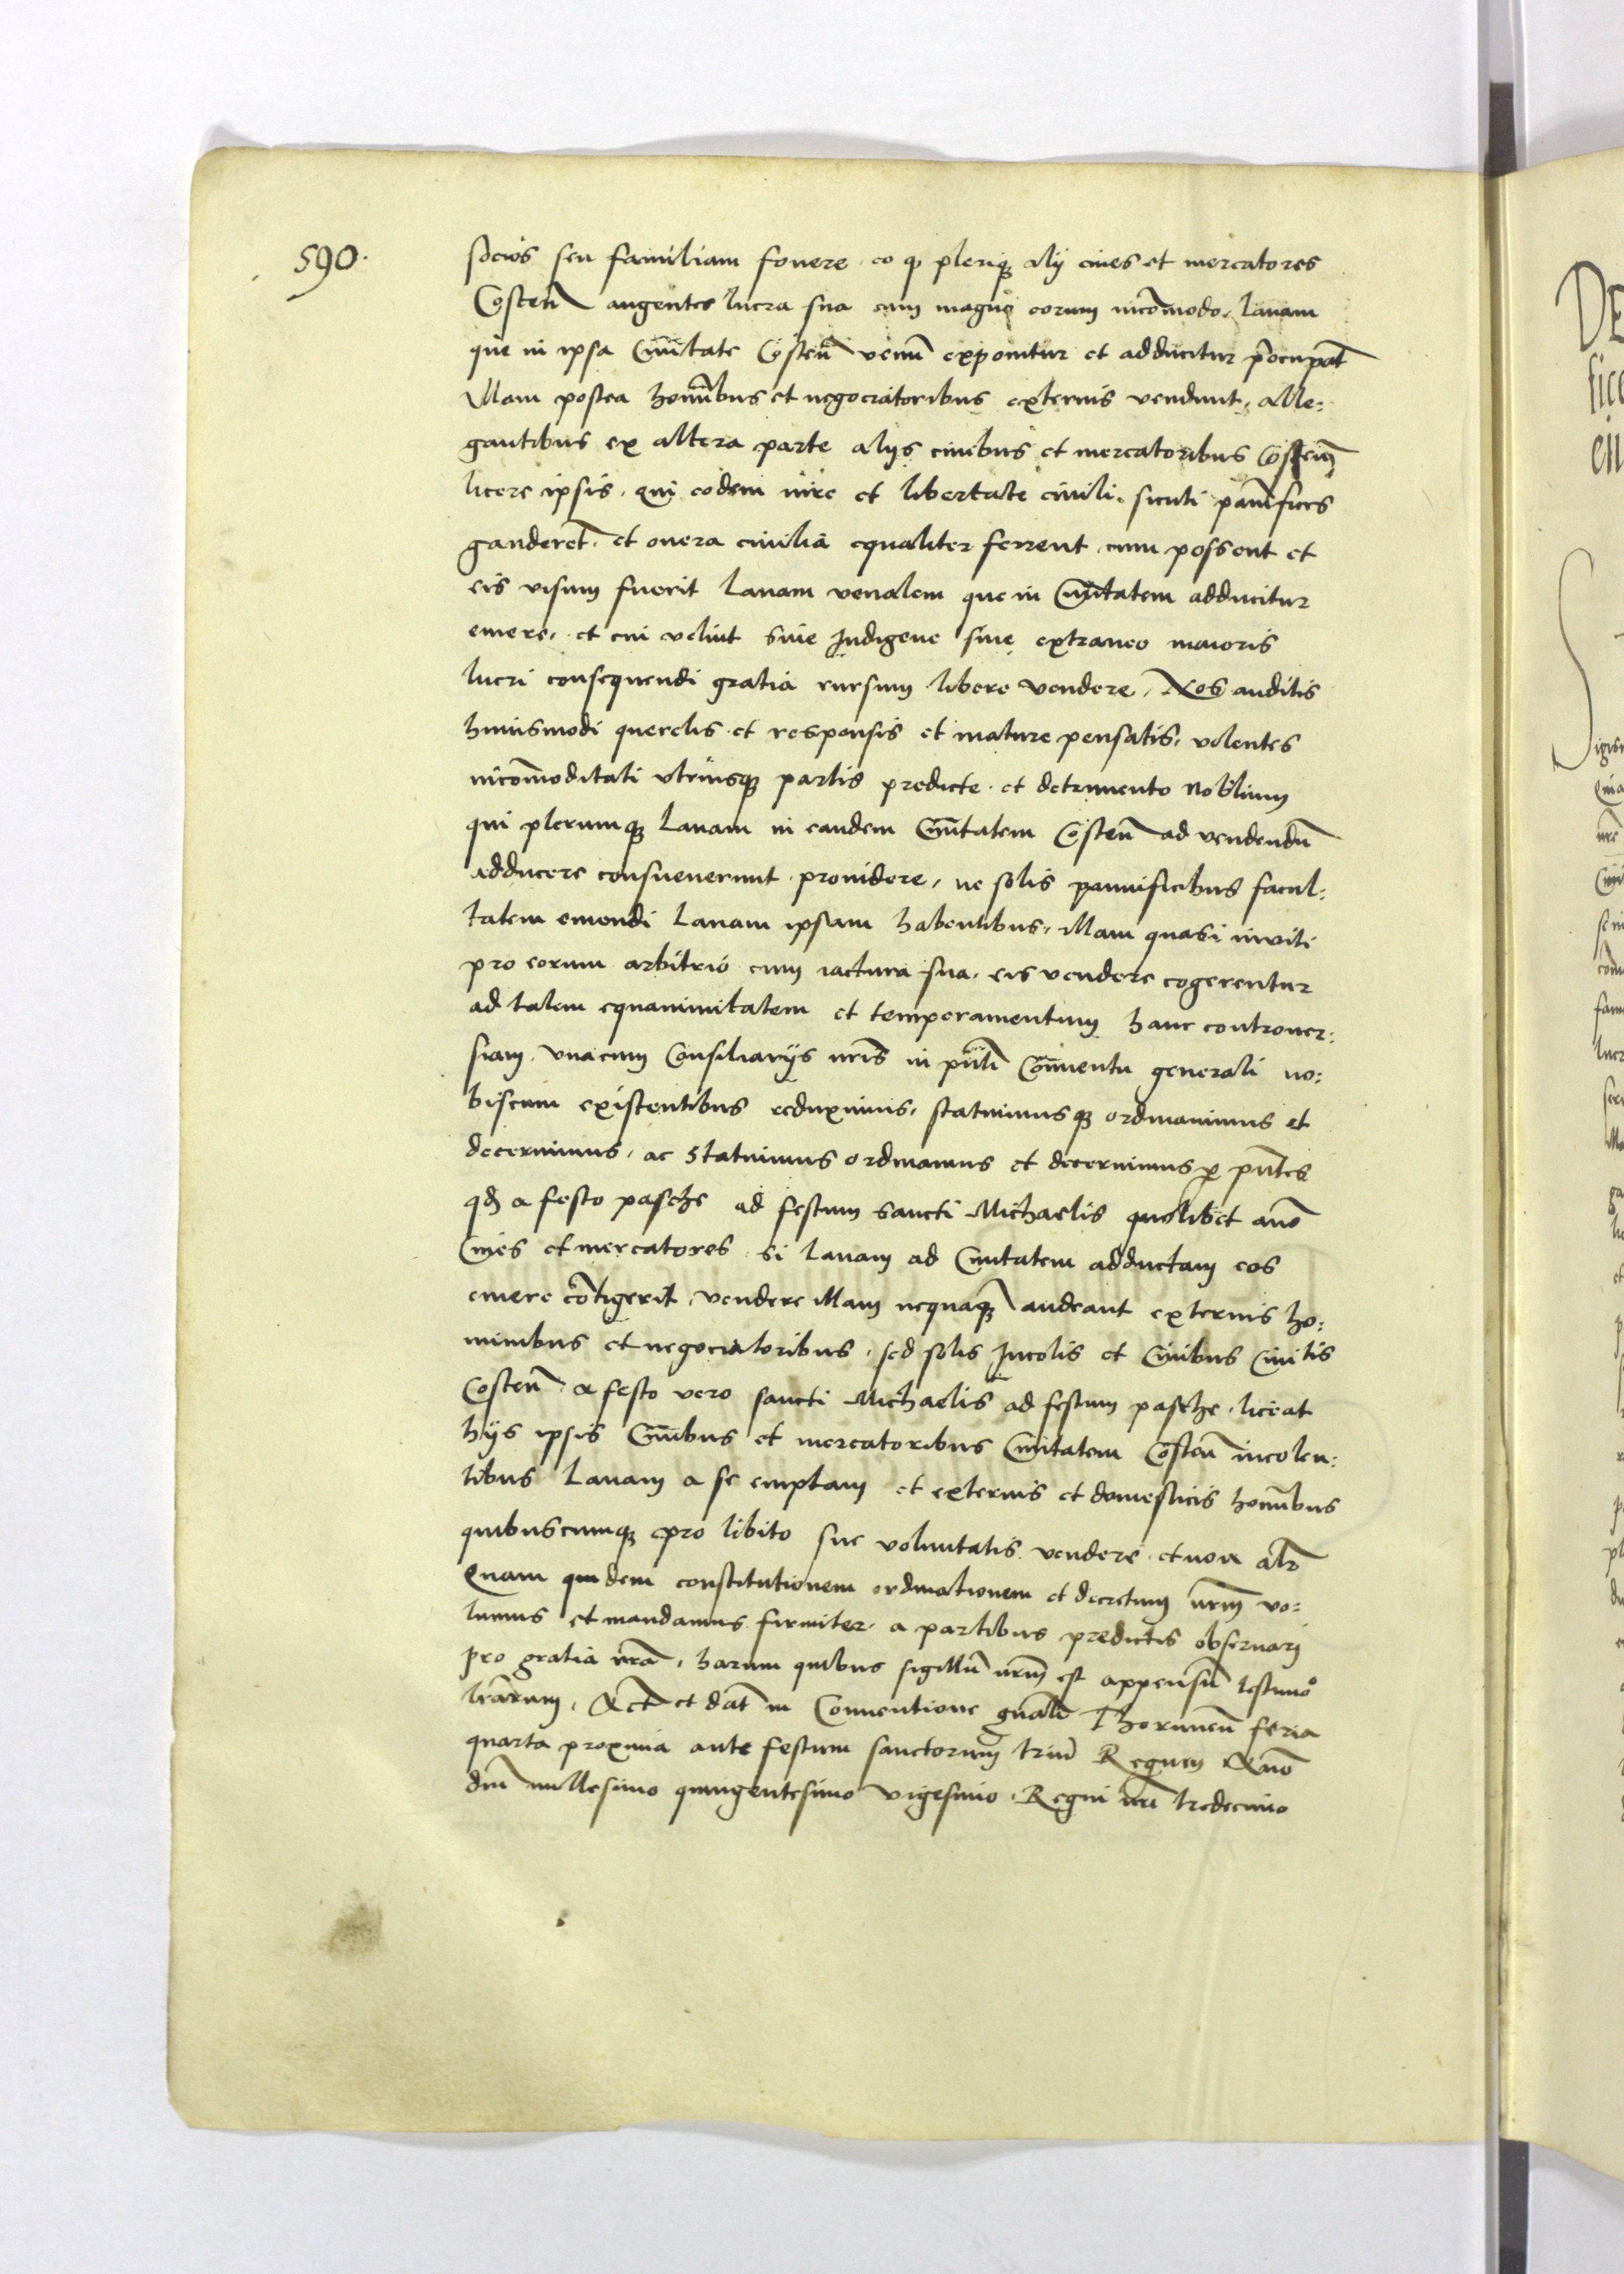 590.
socios seu familiam fovere eo q̱ pleriq̱ alij cives et mercatores
Costeñ augentes lucra sua cum magno eorum incōmodo. Lanam
que in ipsa Civitate Costeñ venū exponitur et adducitur p̄ocupāt
Illam postea homībus et negociatoribus externis vendunt, alle:
gantibus ex altera parte alijs civibus et mercatoribus Costeñ
licere ipsis qui eodem iure et libertate civili sicuti pānifices
gauderēt et onera civilia equaliter ferrent cum possent et
eis visum fuerit Lanam venalem que in Civitatem adducitur
emere, et cui velint sive Indigene sive extraneo maioris
lucri consequendi gratia rursum libere vendere, Nos auditis
huiusmodi querelis et responsis et mature pensatis, volentes
incōmoditati utriusq̱ partis predicte et detrimento nobilium
qui plerumq̱ Lanam in eandem Civitatem Costeñ ad vendendū
adducere consueverunt providere, ne solis pannificibus facul:
tatem emendi Lanam ipsam habentibus, Illam quasi inviti
pro eorum arbitrio cum iactura sua eis vendere cogerentur
ad talem equanimitatem et temperamentum hanc controver:
siam unacum Consiliarijs nr̄is in pn̄ti Conventu generali no:
biscum existentibus reduximus, statuimusq̱ ordinavimus et
decernimus, ac statuimus ordinamus et decernimus ꝑ pn̄tes
qđ a festo pasche ad festum sancti Michaelis quolibet año
Cives et mercatores si Lanam ad Civitatem adductam eos
emere cōtigerit, vendere illam nequaq̱ audeant externis ho:
minibus et negociatoribus, sed solis Incolis et Civibus Civitīs
Costeñ a festo vero sancti Michaelis ad festum pasche liceat
hijs ipsis Civibus et mercatoribus Civitatem Costeñ incolen:
tibus Lanam a se emptam et externis et domesticis homībus
quibuscumq̱ pro libito sue voluntatis vendere et non alr̄
Quam quidem constitutionem ordinationem et decretum nr̄m vo:
lumus et mandamus firmiter a partibus predictis observari
pro gratia nr̄a, harum quibus sigillū nr̄m est appensū testimo°
lr̄arum, Act̄ et dat̄ in Conventione gn̄ali Thoruneñ feria
quarta proxima ante festum sanctorum triū Regum Año
dn̄i millesimo quingentesimo vigesimo, Regni nr̄i tredecimo